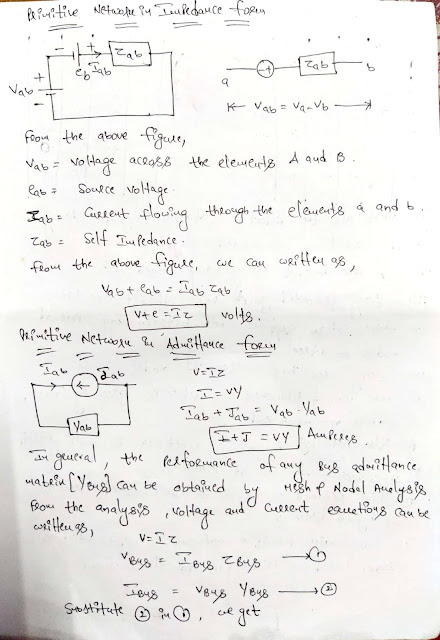 Primitive Network in Impedance form
- + Zab
eb Iab
+ Vab -
+ Zab
a b
Vab = Va-Vb
From the above figure,
Vab = voltage across the elements A and B.
eab = Source voltage.
Iab = Current flowing through the elements a and b.
Zab = Self Impedance.
from the above figure, we can written as,
Vab + eab = Iab Zab
V+e = IZ volts.
Primitive Network in Admittance form
Iab Jab
Yab
V=IZ
I=VY
Iab + Jab = Vab · Yab
I+J = VY Amperes.
In general, the performance of any Bus admittance
matrix [YBUS] can be obtained by Mesh & Nodal Analysis
From the analysis, voltage and current equations can be
written as,
V=IZ
VBUS = IBUS ZBUS → ①
IBUS = VBUS YBUS → ②
Substitute ② in ①, we get